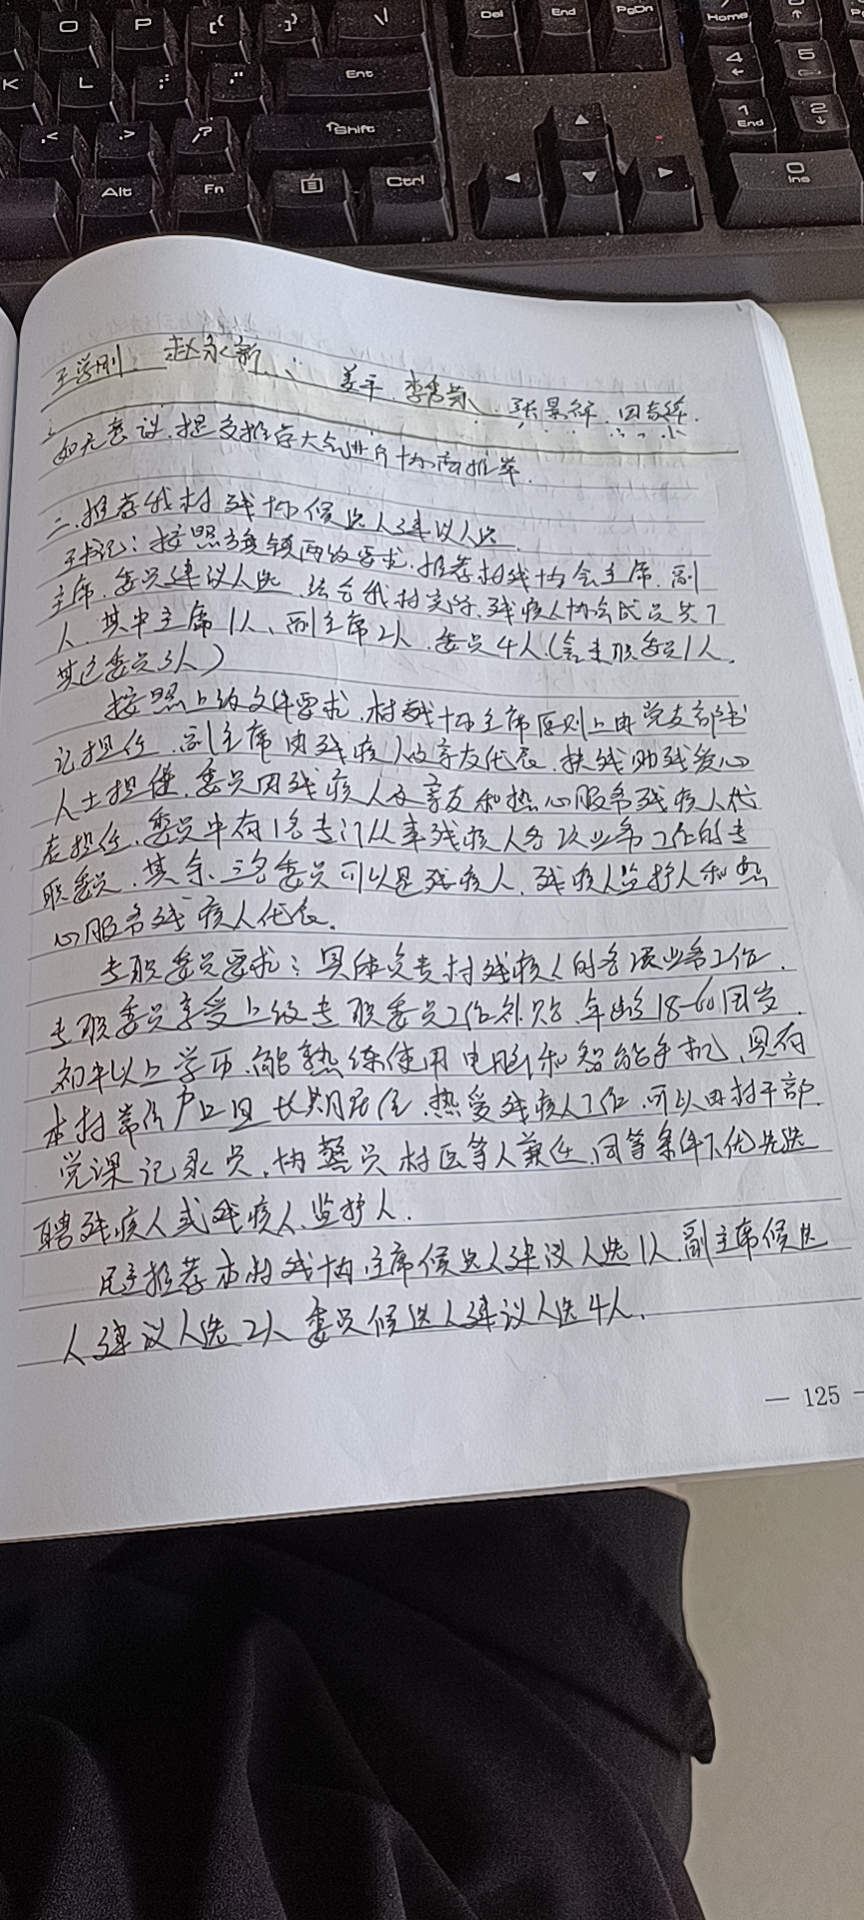 O P [{ ]} \|
Del End PgDn Home
K L ;: '" Ent 4 5
,< .> /? Shift 1 End 2
Alt Fn Ctrl 0 Ins
王学刚、赵永新、姜平、李秀英、张景祥、田春华.
如无意议,提交推荐大会进行协商推举.
二、推荐我村残协候选人建议人选.
王书记:按照县镇两级要求,推荐村残协会主席、副
主席、委员建议人选,结合我村实际,残疾人协会成员共7
人,其中主席1人、副主席2人、委员4人(含专职委员1人,
其它委员3人)
按照上级文件要求,村残协主席原则上由党支部书
记担任,副主席由残疾人及亲友代表、扶残助残爱心
人士担任,委员由残疾人及亲友和热心服务残疾人代
表担任,委员中有1名专门从事残疾人各项业务工作的专
职委员,其余三名委员可以是残疾人、残疾人监护人和热
心服务残疾人代表.
专职委员要求:具体负责村残疾人的各项业务工作.
专职委员享受上级专职委员工作补贴,年龄18-60周岁,
初中以上学历,能熟练使用电脑和智能手机,具有
本村常住户口且长期居住,热爱残疾人工作,可以由村干部、
党课记录员、协警员、村医等人兼任,同等条件下优先选
聘残疾人或残疾人监护人.
民主推荐本村残协主席候选人建议人选1人,副主席候选
人建议人选2人,委员候选人建议人选4人.
— 125 —